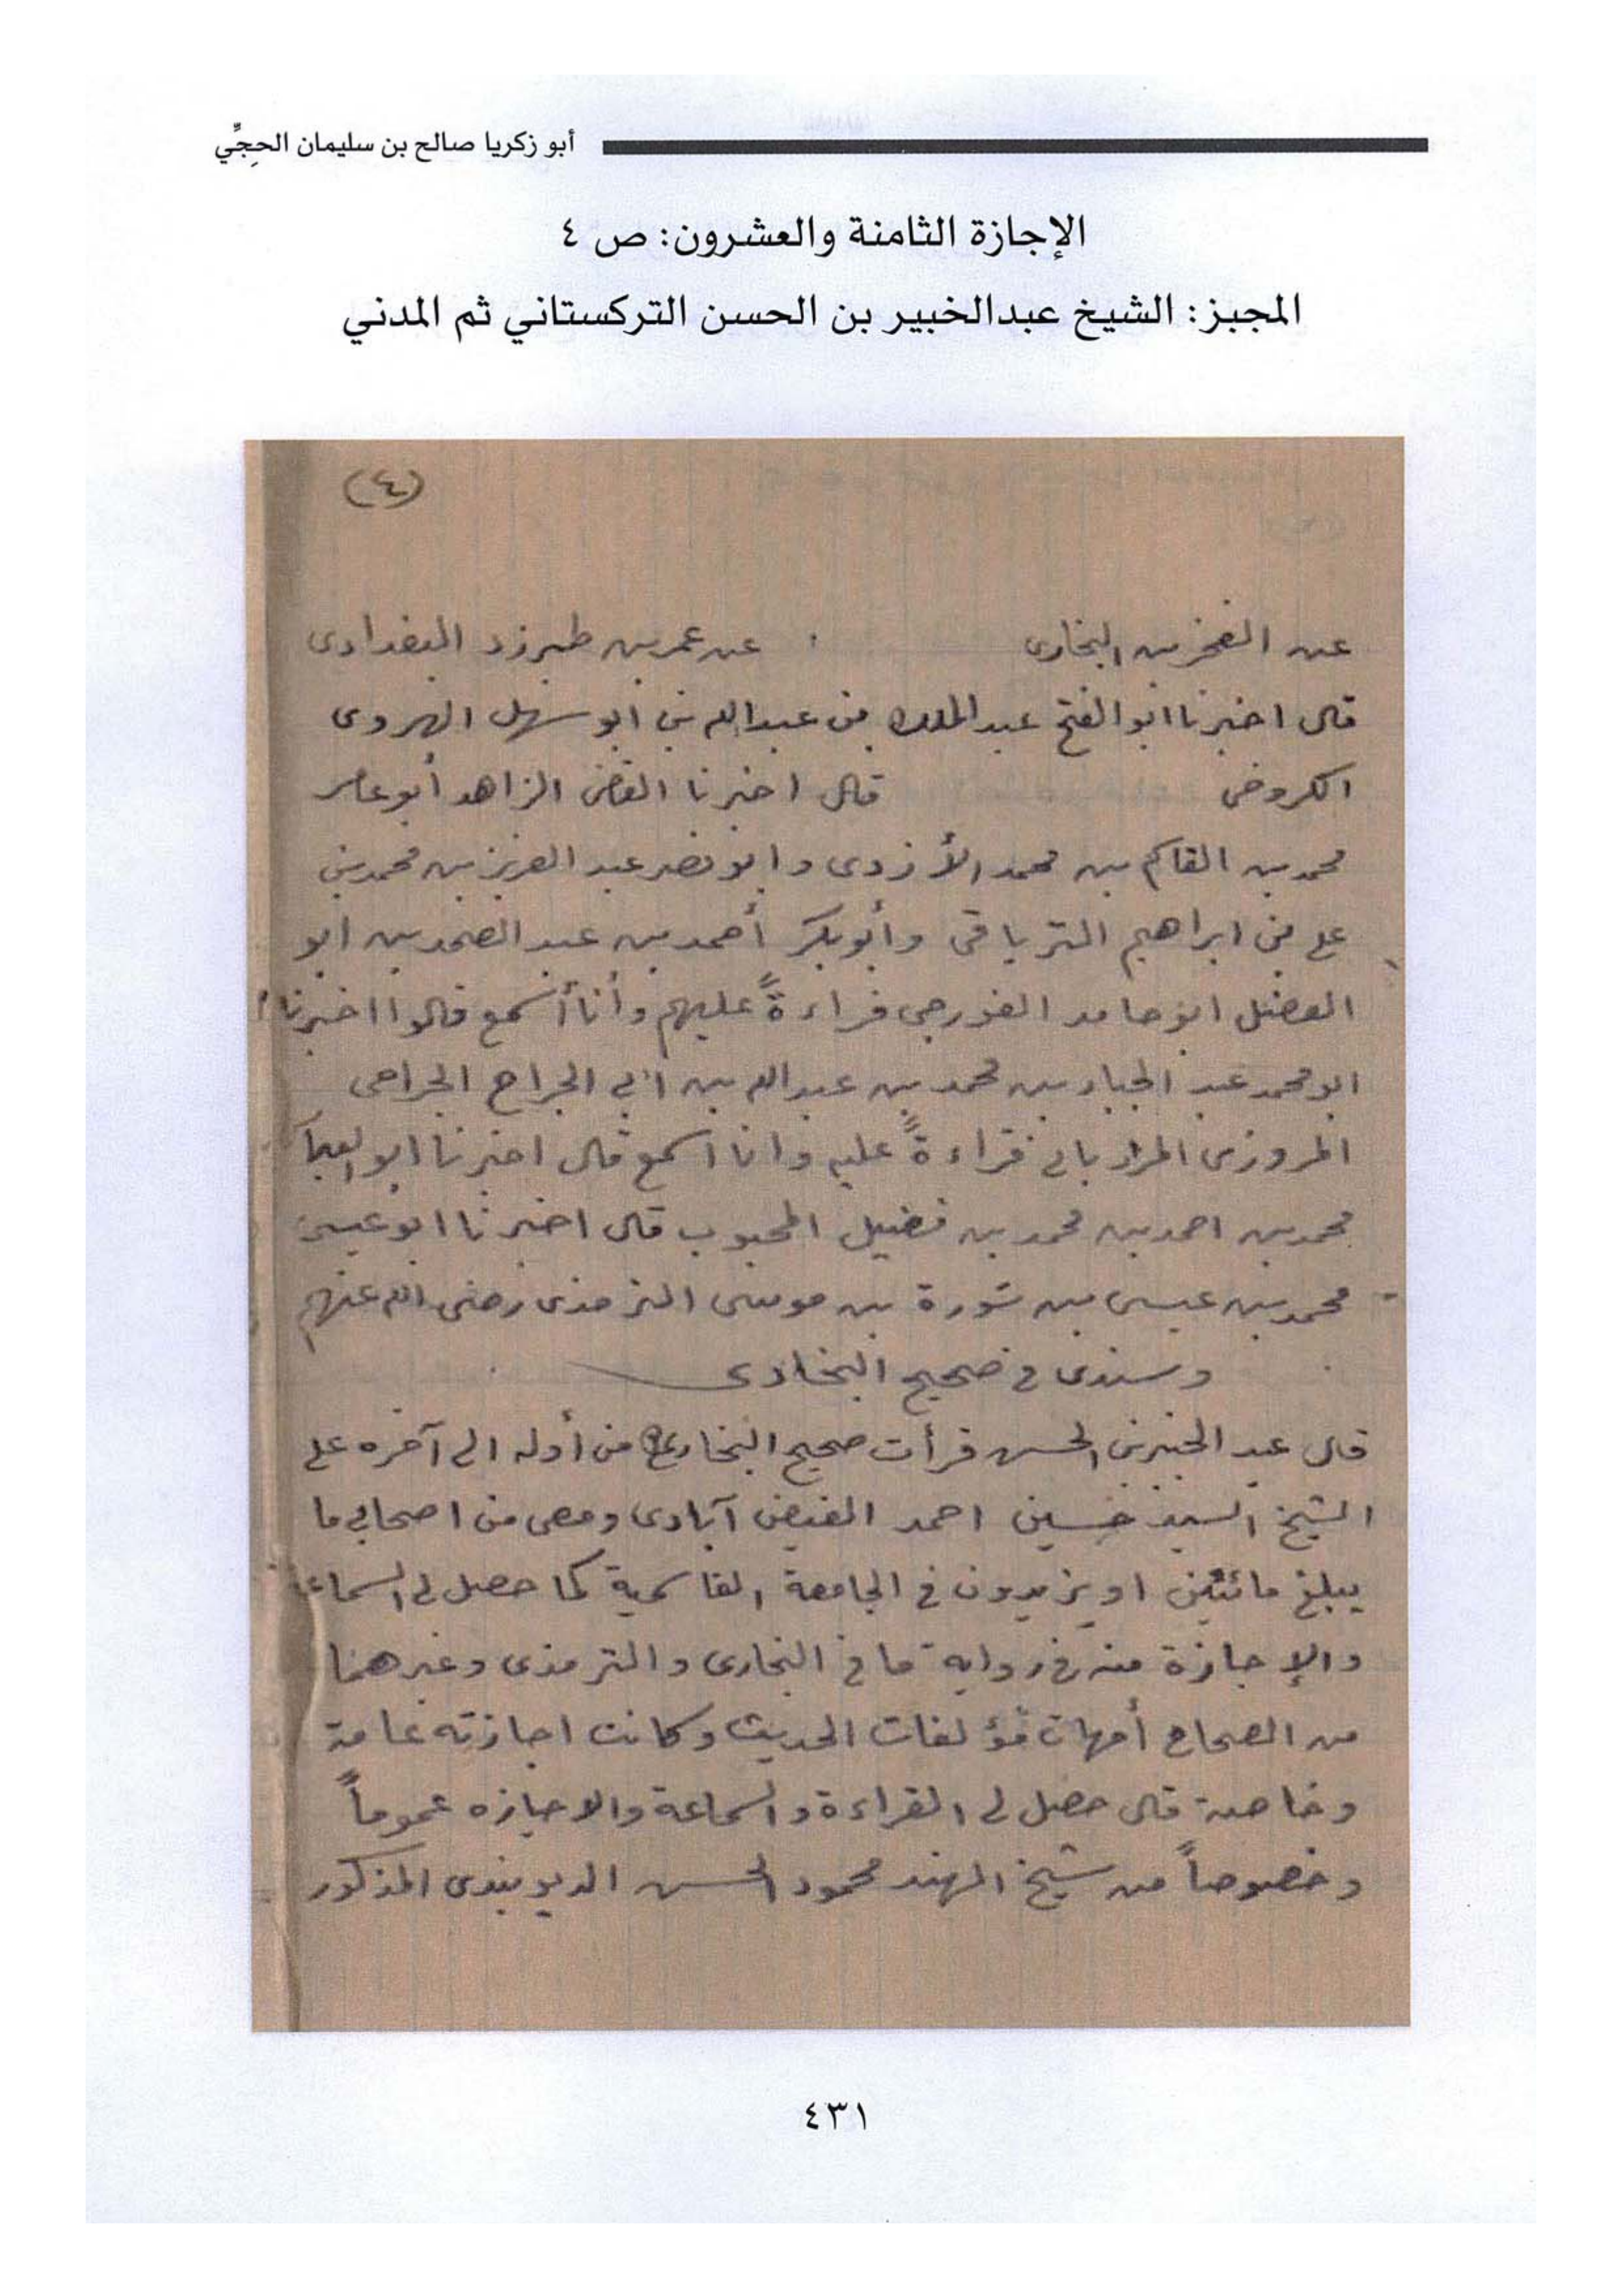 أبو زكريا صالح بن سليمان الحجِّي
الإجازة الثامنة والعشرون: ص ٤
المجبز: الشيخ عبدالخبير بن الحسن التركستاني ثم المدني
(٤)
عن الفخر بن البخارى عن عمر بن طبرزد البغدادى
قال اخبرنا ابو الفتح عبد الملك بن عبدالله بن ابو سهل الهروى
الكروخى قال اخبرنا القاضى الزاهد أبو عامر
محمد بن القاسم بن محمد الأزدى وابو نصر عبد العزيز بن محمد بن
على بن ابراهيم الترياقى وأبو بكر أحمد بن عبد الصمد بن ابو
الفضل ابو حامد الغورجى قراءةً عليهم وأنا أسمع قالوا اخبرنا
ابو محمد عبد الجبار بن محمد بن عبدالله بن أبي الجراح الجراحى
المروزى المرزبانى قراءةً عليه وانا اسمع قال اخبرنا ابو العباس
محمد بن احمد بن محمد بن فضيل المحبوب قال اخبرنا ابو عيسى
محمد بن عيسى بن سورة بن موسى الترمذى رضى الله عنهم
وسندى في صحيح البخارى
قال عبد الخبير بن الحسن قرأت صحيح البخارى من أوله الى آخره على
الشيخ السيد حسين احمد الفيض آبادى ومعى من اصحابي ما
يبلغ مائتين او يزيدون في الجامعة القاسمية كما حصل لى السماع
والإجازة منه في رواية ما في البخارى والترمذى وغيرهما
من الصحاح أمهات مؤلفات الحديث وكانت اجازته عامة
وخاصة قال حصل لى القراءة والسماعة والاجازه عموماً
وخصوصاً من شيخ الهند محمود الحسن الديوبندى المذكور
٤٣١